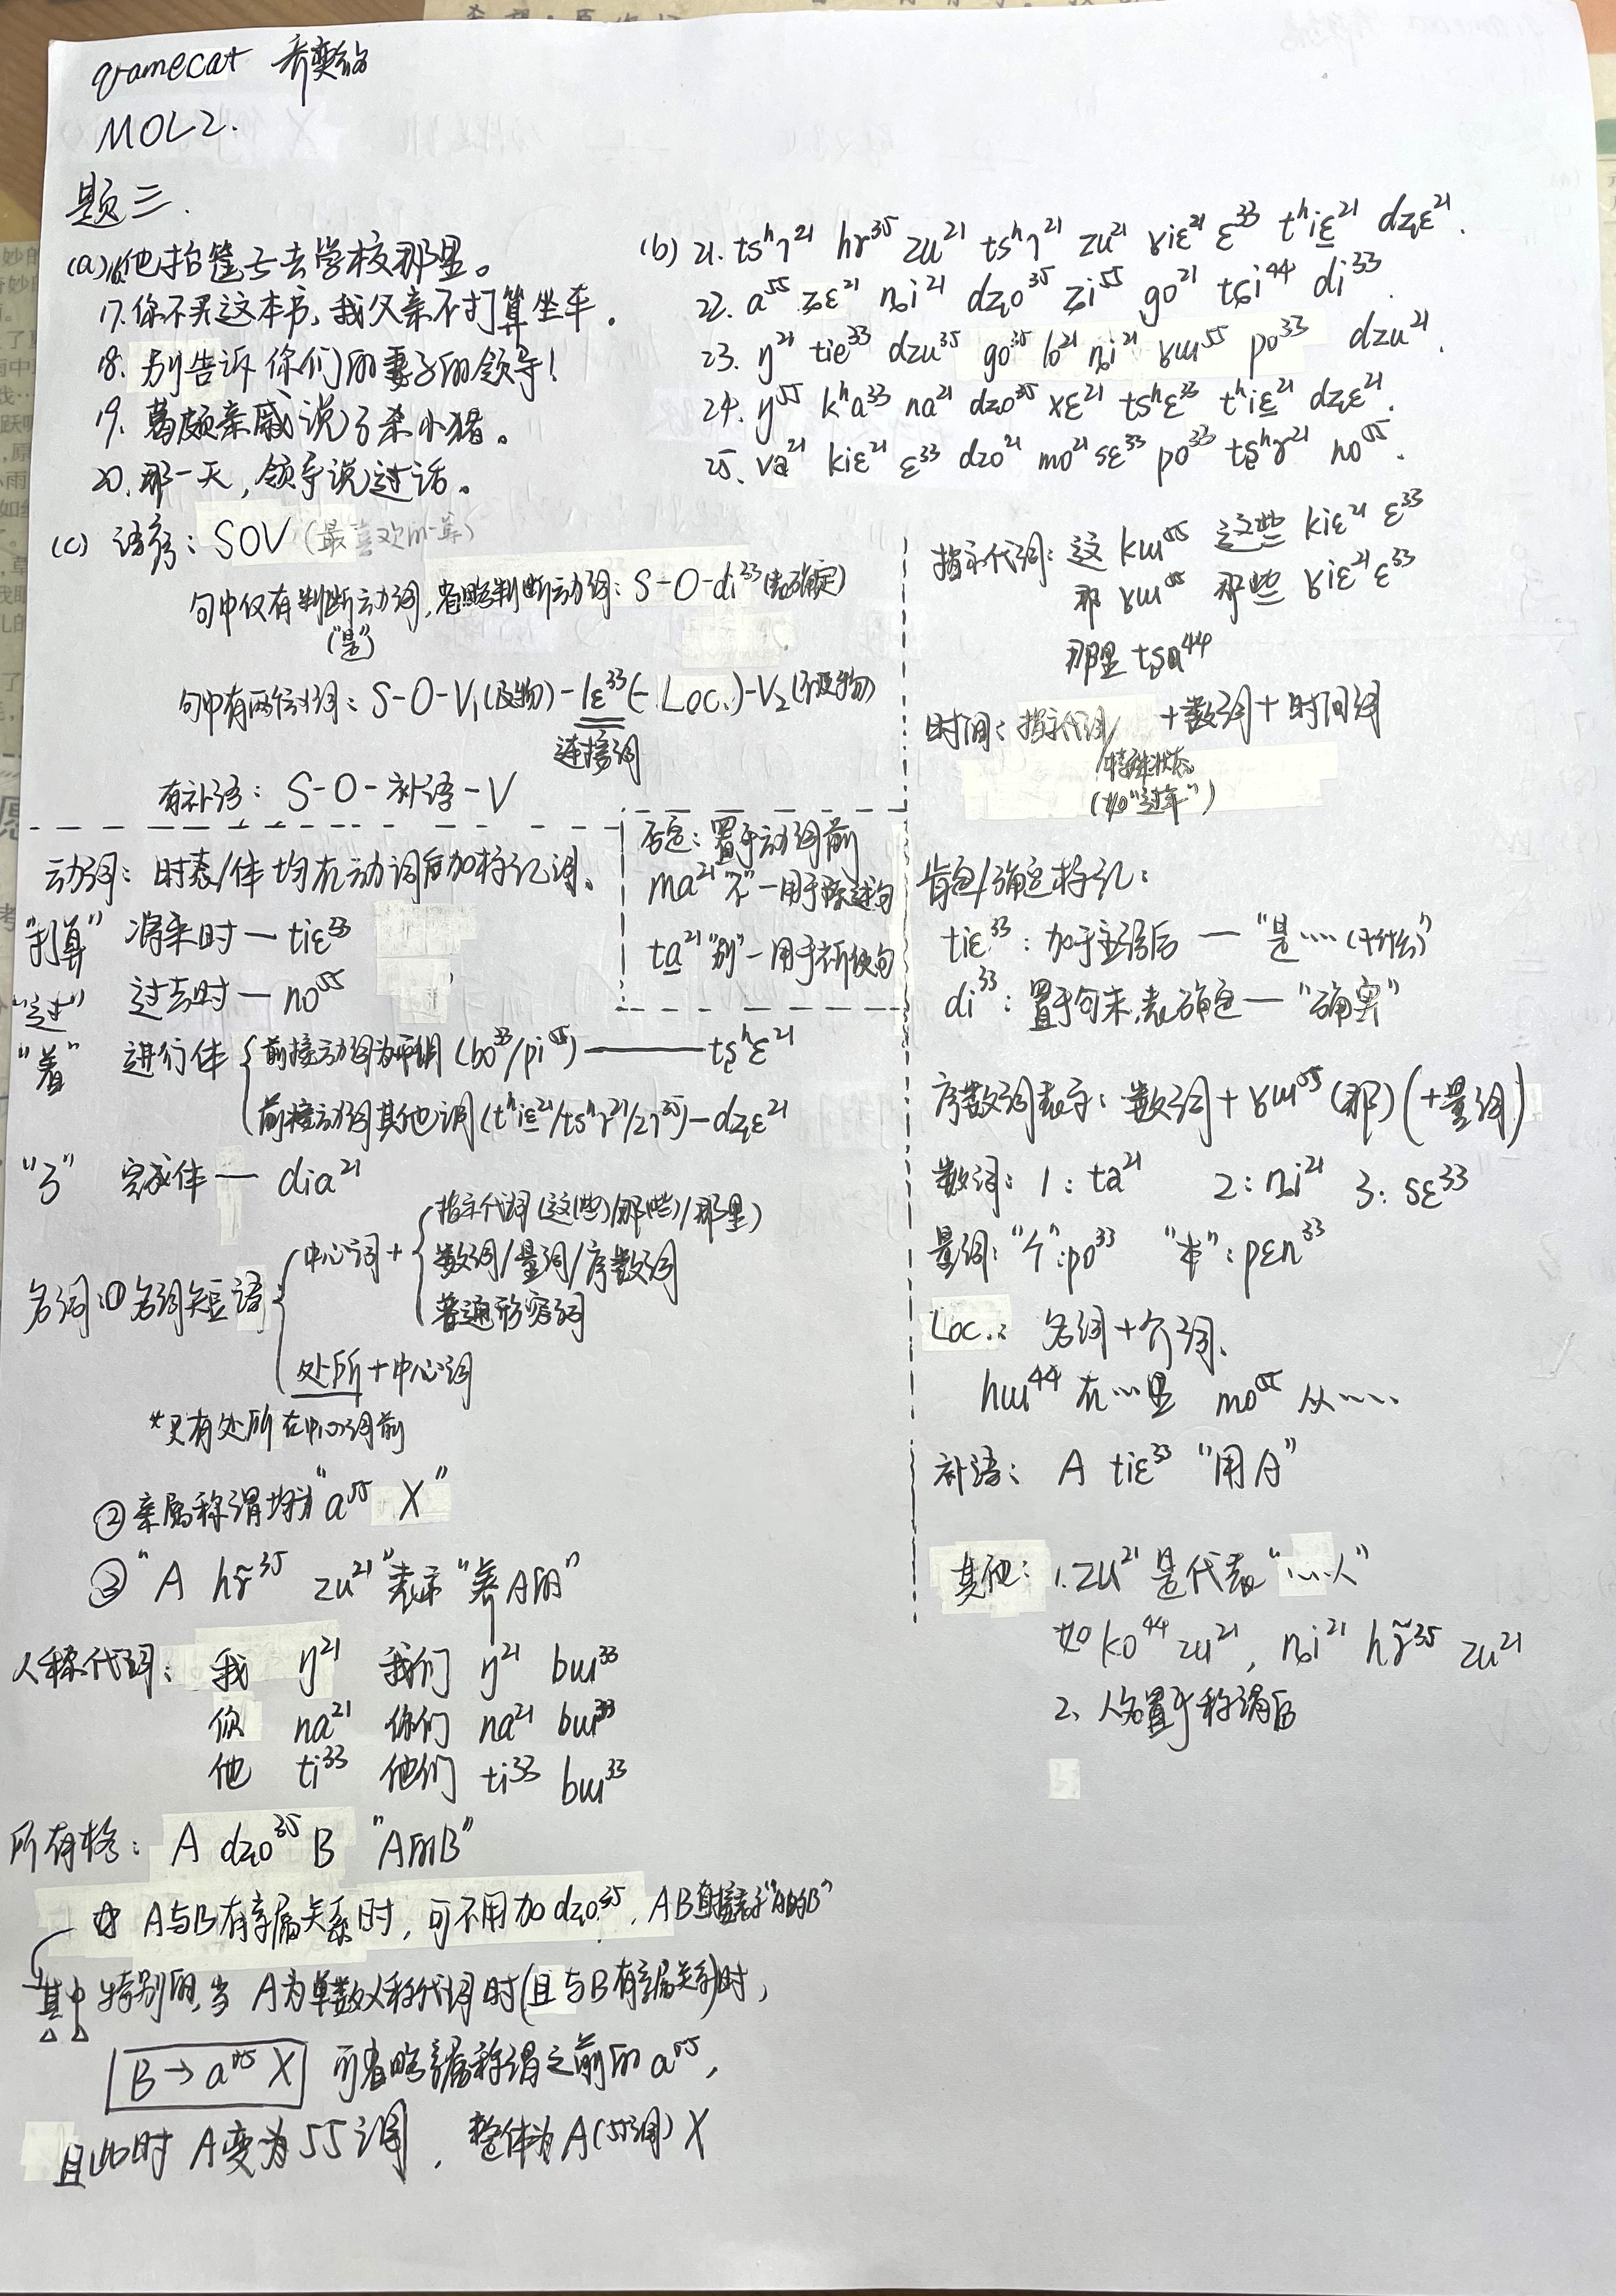 MOL2.
题三.
(a)16.他抬篮子去学校那里。
17.你不买这本书,我父亲不打算坐车.
18.别告诉你们的妻子的领导!
19.葛颇亲戚说了杀小猪。
20.那一天,领导说过话。
(b) 21. tsʰɿ²¹ hɤ³⁵ zu²¹ tsʰɿ²¹ zu²¹ ɤiɛ²¹ ɛ³³ tʰiɛ̱²¹ dzɛ²¹.
22. a⁵⁵ zɛ²¹ ni²¹ dzo³⁵ zi⁵⁵ go²¹ tɕi⁴⁴ di³³.
23. ŋ²¹ tiɛ³³ dzu³⁵ go³⁵ lo²¹ ni²¹ ɤɯ⁵⁵ po³³ dzu²¹.
24. ŋ⁵⁵ kʰa³³ na²¹ dzo³⁵ xɛ²¹ tsʰɛ³³ tʰiɛ̱²¹ dzɛ²¹.
25. va̱²¹ kiɛ²¹ ɛ³³ dzo²¹ mo²¹ sɛ³³ po³³ tʂʰɤ²¹ no⁵⁵.
(c) 语序: SOV
句中仅有判断动词,省略判断动词: S-O-di³³(表确定)
("是")
句中有两个动词: S-O-V₁(及物)-lɛ³³(-Loc.)-V₂(不及物)
连接词
有补语: S-O-补语-V
动词: 时态/体均在动词后加标记词、
"打算" 将来时—tiɛ³³
"过" 过去时—no⁵⁵
"着" 进行体 前接动词为平调(bo³³/pi⁵⁵)——tʂʰɛ²¹
前接动词其他调(tʰiɛ̱²¹/tsʰɿ²¹/zɿ³⁵)—dzɛ²¹
"了" 完成体—dia²¹
否定: 置于动词前
ma²¹"不"—用于陈述句
ta̱²¹"别"—用于祈使句
名词:①名词短语 中心词+ 指示代词(这(些)/那(些)/那里)
数词/量词/序数词
普通形容词
处所+中心词
*只有处所在中心词前
②亲属称谓均为"a⁵⁵ X"
③"A hɤ̃³⁵ zu²¹"表示"养A的"
人称代词: 我 ŋ²¹ 我们 ŋ²¹ bɯ³³
你 na²¹ 你们 na²¹ bɯ³³
他 ti³³ 他们 ti³³ bɯ³³
所有格: A dzo³⁵ B "A的B"
A与B有亲属关系时,可不用加dzo³⁵, AB直接表示"A的B"
其中特别的,当A为单数人称代词时(且与B有亲属关系)时,
B→a⁵⁵ X 可省略亲属称谓之前的a⁵⁵,
且此时A变为55调,整体为A(55调) X
指示代词: 这 kɯ⁵⁵ 这些 kiɛ²¹ ɛ³³
那 ɤɯ⁵⁵ 那些 ɤiɛ²¹ ɛ³³
那里 tsa⁴⁴
时间: 指示代词/ +数词+时间词
特殊状态
(如"过年")
肯定/确定标记:
tiɛ³³: 加于主语后—"是……(干什么)"
di³³: 置于句末,表确定—"确实"
序数词表示: 数词+ɤɯ⁵⁵(那)(+量词)
数词: 1: ta²¹ 2: ni²¹ 3: sɛ³³
量词: "个":po³³ "本":pɛn³³
Loc.: 名词+介词、
hɯ⁴⁴ 在…里 mo⁵⁵ 从……
补语: A tiɛ³³ "用A"
其他: 1. zu²¹ 是代表"…人"
如 ko⁴⁴ zu²¹, ni²¹ hɤ̃³⁵ zu²¹
2、人名置于称谓后